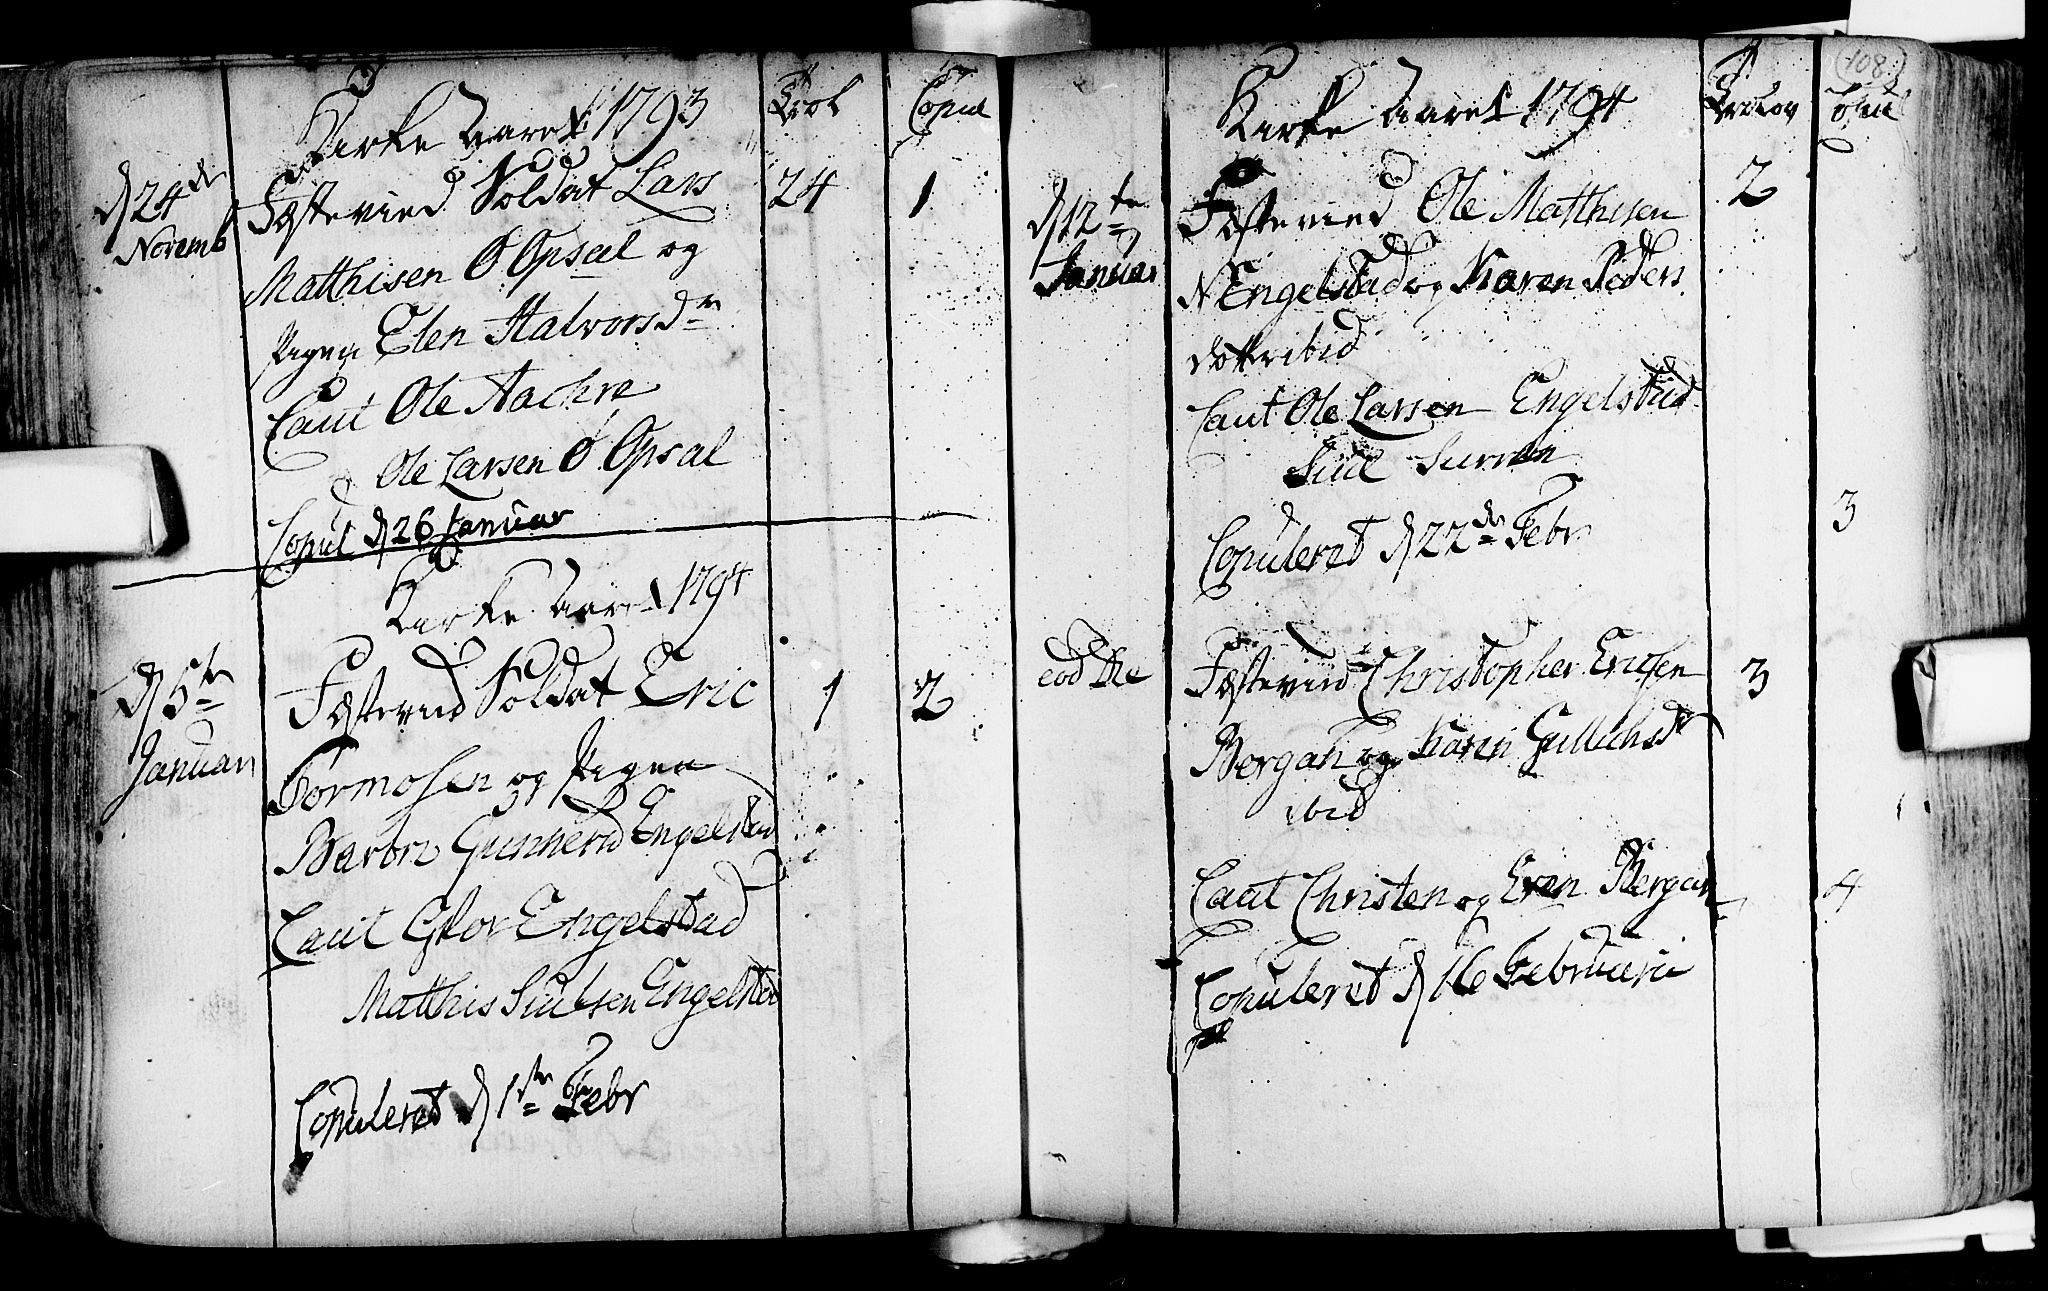 Kirke Aaret 1793
Trol
Copul
d 24de
Novemb
Fæstevied Soldat Lars
24
1
Matthisen Ø Opsal og
Pigen Elen Halvorsdr
Caut Ole Aachre
Ole Larsen Ø Opsal
Copul d 26 Januar
Kirke Aaret 1794
d 5te
Januari
Fæstevied Soldat Eric
1
2
Tormosen og Pigen
Baroni Gunnerud Engelstad
Caut Glor Engelstad
Matthis Siulsen Engelstad
Copuleret d 1ste Febr
108
Kirke Aaret 1794
Trolov
Copul
d 12te
Januar
Fæstevied Ole Matthisen
2
N Engelstad og Karen Peders
dotter ibid
Caut Ole Larsen Engelstad
Siul Surren
Copuleret d 22de Febr
3
eod Die
Fæstevied Christopher Ericsen
3
Bergan og Karen Gullichsdr
ibid
Caut Christen og Even Bergan
4
Copuleret d 16 Februarii